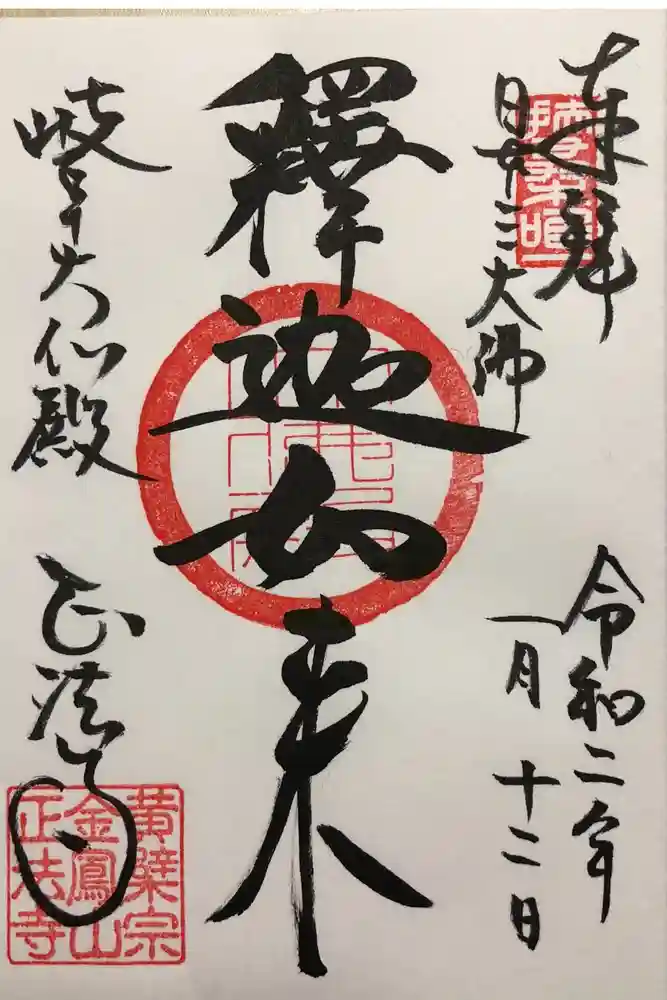 奉拝
日本三大佛
令和二年
一月十二日
釋迦如来
岐阜大仏殿
正法寺
黄檗宗
金鳳山
正法寺